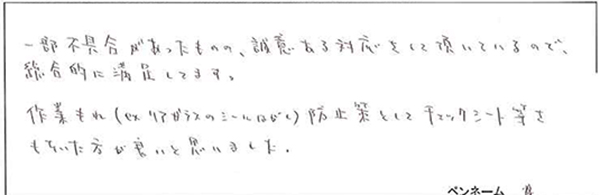 一部不具合があったものの、誠意ある対応をして頂いているので、
総合的に満足してます。
作業もれ(ex リアガラスのシールはがし)防止策としてチェックシート等を
もちいた方が良いと思いました。
ペンネーム